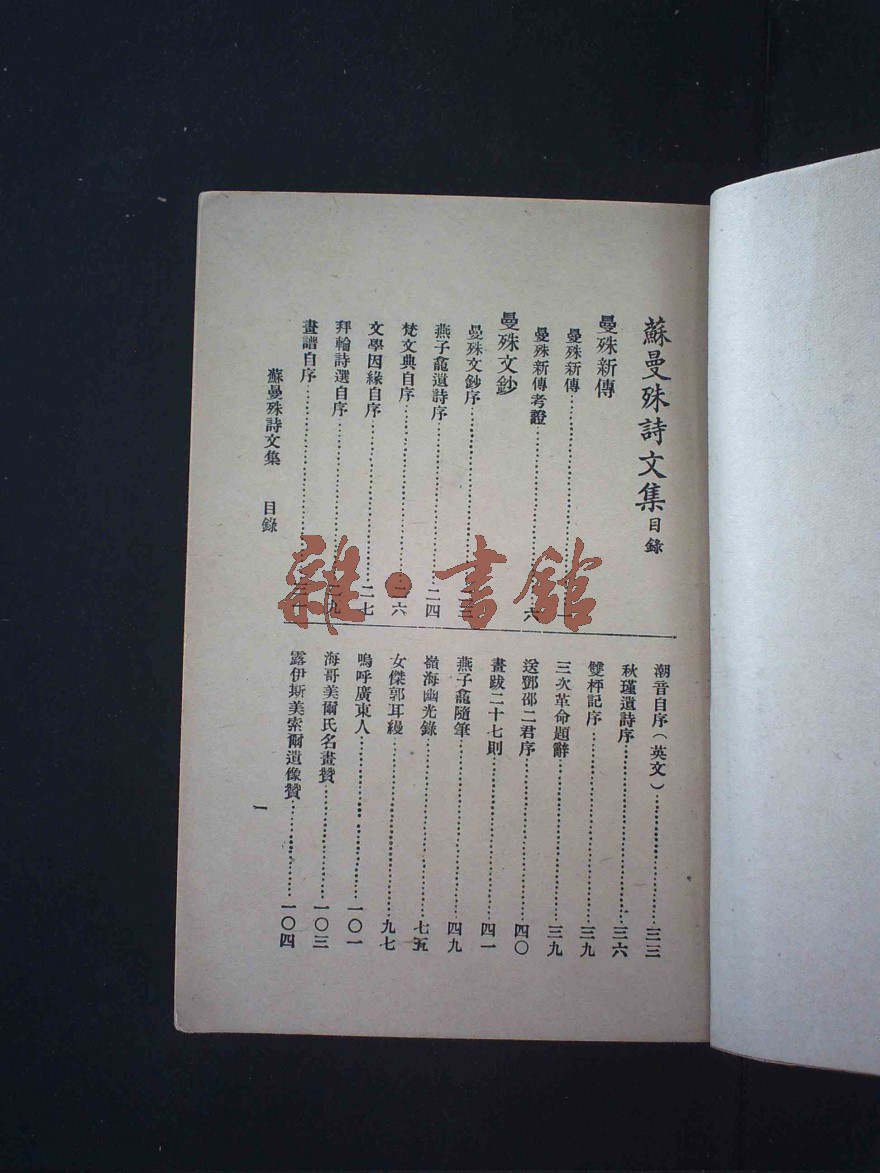 蘇曼殊詩文集目錄
曼殊新傳
曼殊新傳
曼殊新傳考證……六
曼殊文鈔
曼殊文鈔序……二三
燕子龕遺詩序……二四
梵文典自序……二六
文學因緣自序……二七
拜輪詩選自序……二九
畫譜自序……三一
潮音自序(英文)……三三
秋瑾遺詩序……三六
雙枰記序……三九
三次革命題辭……三九
送鄧邵二君序……四〇
畫跋二十七則……四一
燕子龕隨筆……四九
嶺海幽光錄……七五
女傑郭耳縵……九七
嗚呼廣東人……一〇一
海哥美爾氏名畫贊……一〇三
露伊斯美索爾遺像贊……一〇四
蘇曼殊詩文集 目錄
一
雜·書館